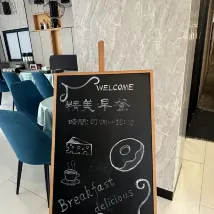 WELCOME
精美早餐
時間：07:00—10:00
Breakfast
delicious